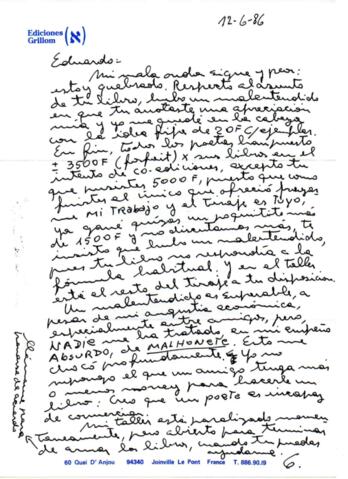 Ediciones
Grillom
12-6-86
Eduardo:
Mi mala onda sigue y peor:
estoy quebrado. Respecto al asunto
de tu libro, hubo un malentendido
en que tu anotaste una apreciación
mía y yo me quedé en la cabeza
con la idea fija de 20F c/ejemplar.
En fin, todos los poetas han puesto
± 3500F (forfait) x sus libros en el
intento de co-ediciones, excepto tu
que pusistes 5000F, puesto que como
fuistes el único que apreció
MI TRABAJO y el tiraje es TUYO,
ya gané quizás un poquitito más
de 1500F y no discutamos más, te
insisto que hubo un malentendido,
pues tu libro no respondía a la
fórmula habitual; y en el taller
está el resto del tiraje a tu disposición.
Un malentendido es superable, a
pesar de mi angustia económica,
especialmente entre amigos, pero,
NADIE me ha tratado, en mi empeño
ABSURDO, de MALHONETE. Esto me
chocó profundamente, yo no
supongo el que un amigo tenga más
o menos money para hacerle un
libro: Creo que un poeta es incapaz
de comerciar.
Mi taller está paralizado momen-
taneamente, pero abierto para terminar
de armar los libros, cuando tu puedas
ayudarme.
G.
Llámame para
ponernos de acuerdo
60 Quai D' Anjou 94340 Joinville Le Pont France T. 886.90.19